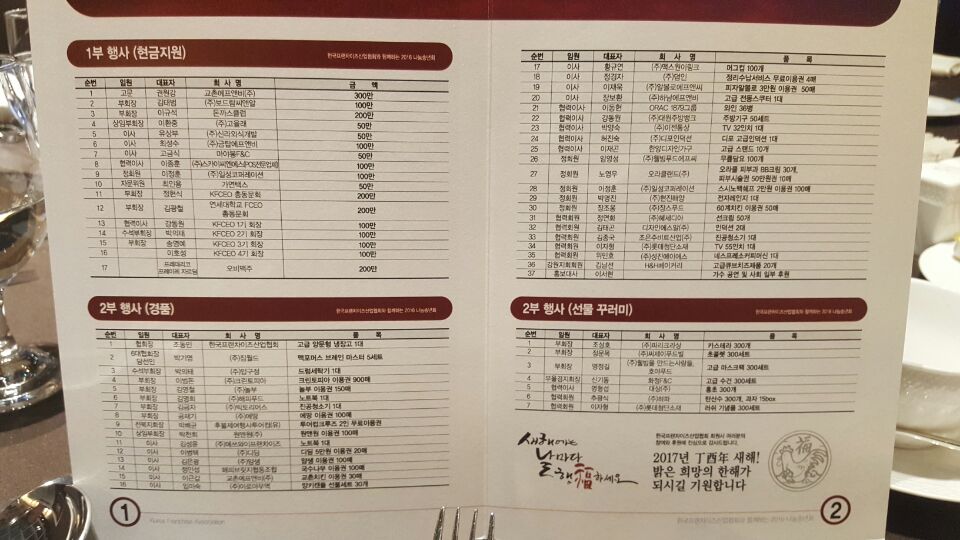 1부 행사 (현금지원)
한국프랜차이즈산업협회와 함께하는 2016 나눔송년회
순번 임원 대표자 회 사 명 금 액
1 고문 권원강 교촌에프앤비(주) 300만
2 부회장 김태범 (주)보드람씨앤알 100만
3 부회장 이규석 돈까스클럽 200만
4 상임부회장 이환중 (주)고을래 50만
5 이사 유상부 (주)신라외식개발 50만
6 이사 최성수 (주)금탑에프앤비 100만
7 이사 고금식 마이몽F&C 50만
8 협력이사 이종호 100만
9 정회원 이정훈 (주)일성코퍼레이션 100만
10 자문위원 최인용 가면택스 50만
11 부회장 정현식 KFCEO 총동문회 200만
12 부회장 김광철 연세대학교 FCEO 총동문회 200만
13 협력이사 강동원 KFCEO 1기 회장 100만
14 수석부회장 박의태 KFCEO 2기 회장 100만
15 부회장 송영예 KFCEO 3기 회장 100만
16 이호성 KFCEO 4기 회장 100만
17 프레데리코 프레이레 자르딤 오비맥주 200만
2부 행사 (경품)
한국프랜차이즈산업협회와 함께하는 2016 나눔송년회
순번 임원 대표자 회 사 명 품 목
1 협회장 조동민 한국프랜차이즈산업협회 고급 양문형 냉장고 1대
2 6대협회장 당선인 박기영 (주)짐월드 맥포머스 브레인 마스터 5세트
3 수석부회장 박의태 (주)압구정 드럼세탁기 1대
4 부회장 이범돈 (주)크린토피아 크린토피아 이용권 900매
5 부회장 김영철 (주)놀부 놀부 이용권 150매
6 부회장 김명희 (주)해피푸드 노트북 1대
7 부회장 김금자 (주)빅토리어스 진공청소기 1대
8 부회장 공재기 (주)예땅 예땅 이용권 100매
9 선복지회장 박백균 투어컴크루즈 2인 무료이용권
10 상임부회장 박천희 원앤원(주) 원앤원 이용권 100매
11 이사 김성윤 노트북 1대
12 이사 이병택 (주)디딤 디딤 5만원 이용권 20매
13 이사 김은광 (주)얌샘 얌샘 이용권 100매
14 이사 정민섭 국수나무 이용권 100매
15 이사 이근갑 교촌에프앤비(주) 교촌치킨 이용권 30매
16 이사 임미숙 (주)아로마무역 양키캔들 선물세트 30개
순번 임원 대표자 회 사 명 품 목
17 이사 황규연 (주)맥스원이링크 머그컵 100개
18 이사 정경자 (주)덤인 정리수납서비스 무료이용권 4매
19 이사 이재욱 (주)알볼로에프앤씨 피자알볼로 3만원 이용권 50매
20 이사 장보환 (주)하남에프앤비 고급 전통스쿠터 1대
21 협력이사 이동헌 ORAC 1879그룹 와인 36병
22 협력이사 강동원 (주)대원주방뱅크 주방기구 50세트
23 협력이사 박양숙 (주)이젠통상 TV 32인치 1대
24 협력이사 허진숙 (주)디포인덕션 디포 고급인덕션 1대
25 협력이사 이재곤 한얌디자인가구 고급 스탠드 10개
26 정회원 임영성 (주)웰빙푸드에프씨 무릎담요 100개
27 정회원 노영우 오라클랜드(주) 오라클 피부과 BB크림 30개, 피부시술권 50만원권 10매
28 정회원 이정훈 (주)일성코퍼레이션 스시노백쉐프 2만원 이용권 100매
29 정회원 박영진 (주)현진해양 전자레인지 1대
30 정회원 장조웅 (주)장스푸드 60계치킨 이용권 50매
31 협력회원 정연화 (주)혜세디아 선크림 50개
32 협력회원 김태곤 디자인에스알(주) 인덕션 2대
33 협력회원 김종국 조은주비트산업(주) 진공청소기 1대
34 협력회원 이자형 (주)롯데첨단소재 TV 55인치 1대
35 협력회원 위민호 (주)성진에이에스 네스프레소커피머신 1대
36 강원지회회원 김남선 H&H베이커리 고급큐브치즈제품 20개
37 홍보대사 이서린 가수 공연 및 사회 일부 후원
2부 행사 (선물 꾸러미)
한국프랜차이즈산업협회와 함께하는 2016 나눔송년회
순번 임원 대표자 회 사 명 품 목
1 부회장 조상호 (주)파리크라상 카스테라 300개
2 부회장 정문목 (주)씨제이푸드빌 초콜렛 300세트
3 부회장 명정길 (주)웰빙을 만드는사람들, 호야푸드 고급 마스크팩 300세트
4 부울경지회장 신기동 화정F&C 고급 수건 300세트
5 협력이사 명형섭 대상(주) 홍초 300개
6 협력회원 추광식 (주)하파 탄산수 300개, 과자 15box
7 협력회원 이자형 (주)롯데첨단소재 러쉬 기념품 300세트
새해에는
날마다
행福하세요
한국프랜차이즈산업협회 회원사 여러분의
참여와 후원에 진심으로 감사드립니다.
2017년 丁酉年 새해!
밝은 희망의 한해가
되시길 기원합니다
1
Korea Franchise Association
한국프랜차이즈산업협회와 함께하는 2016 나눔송년회
2